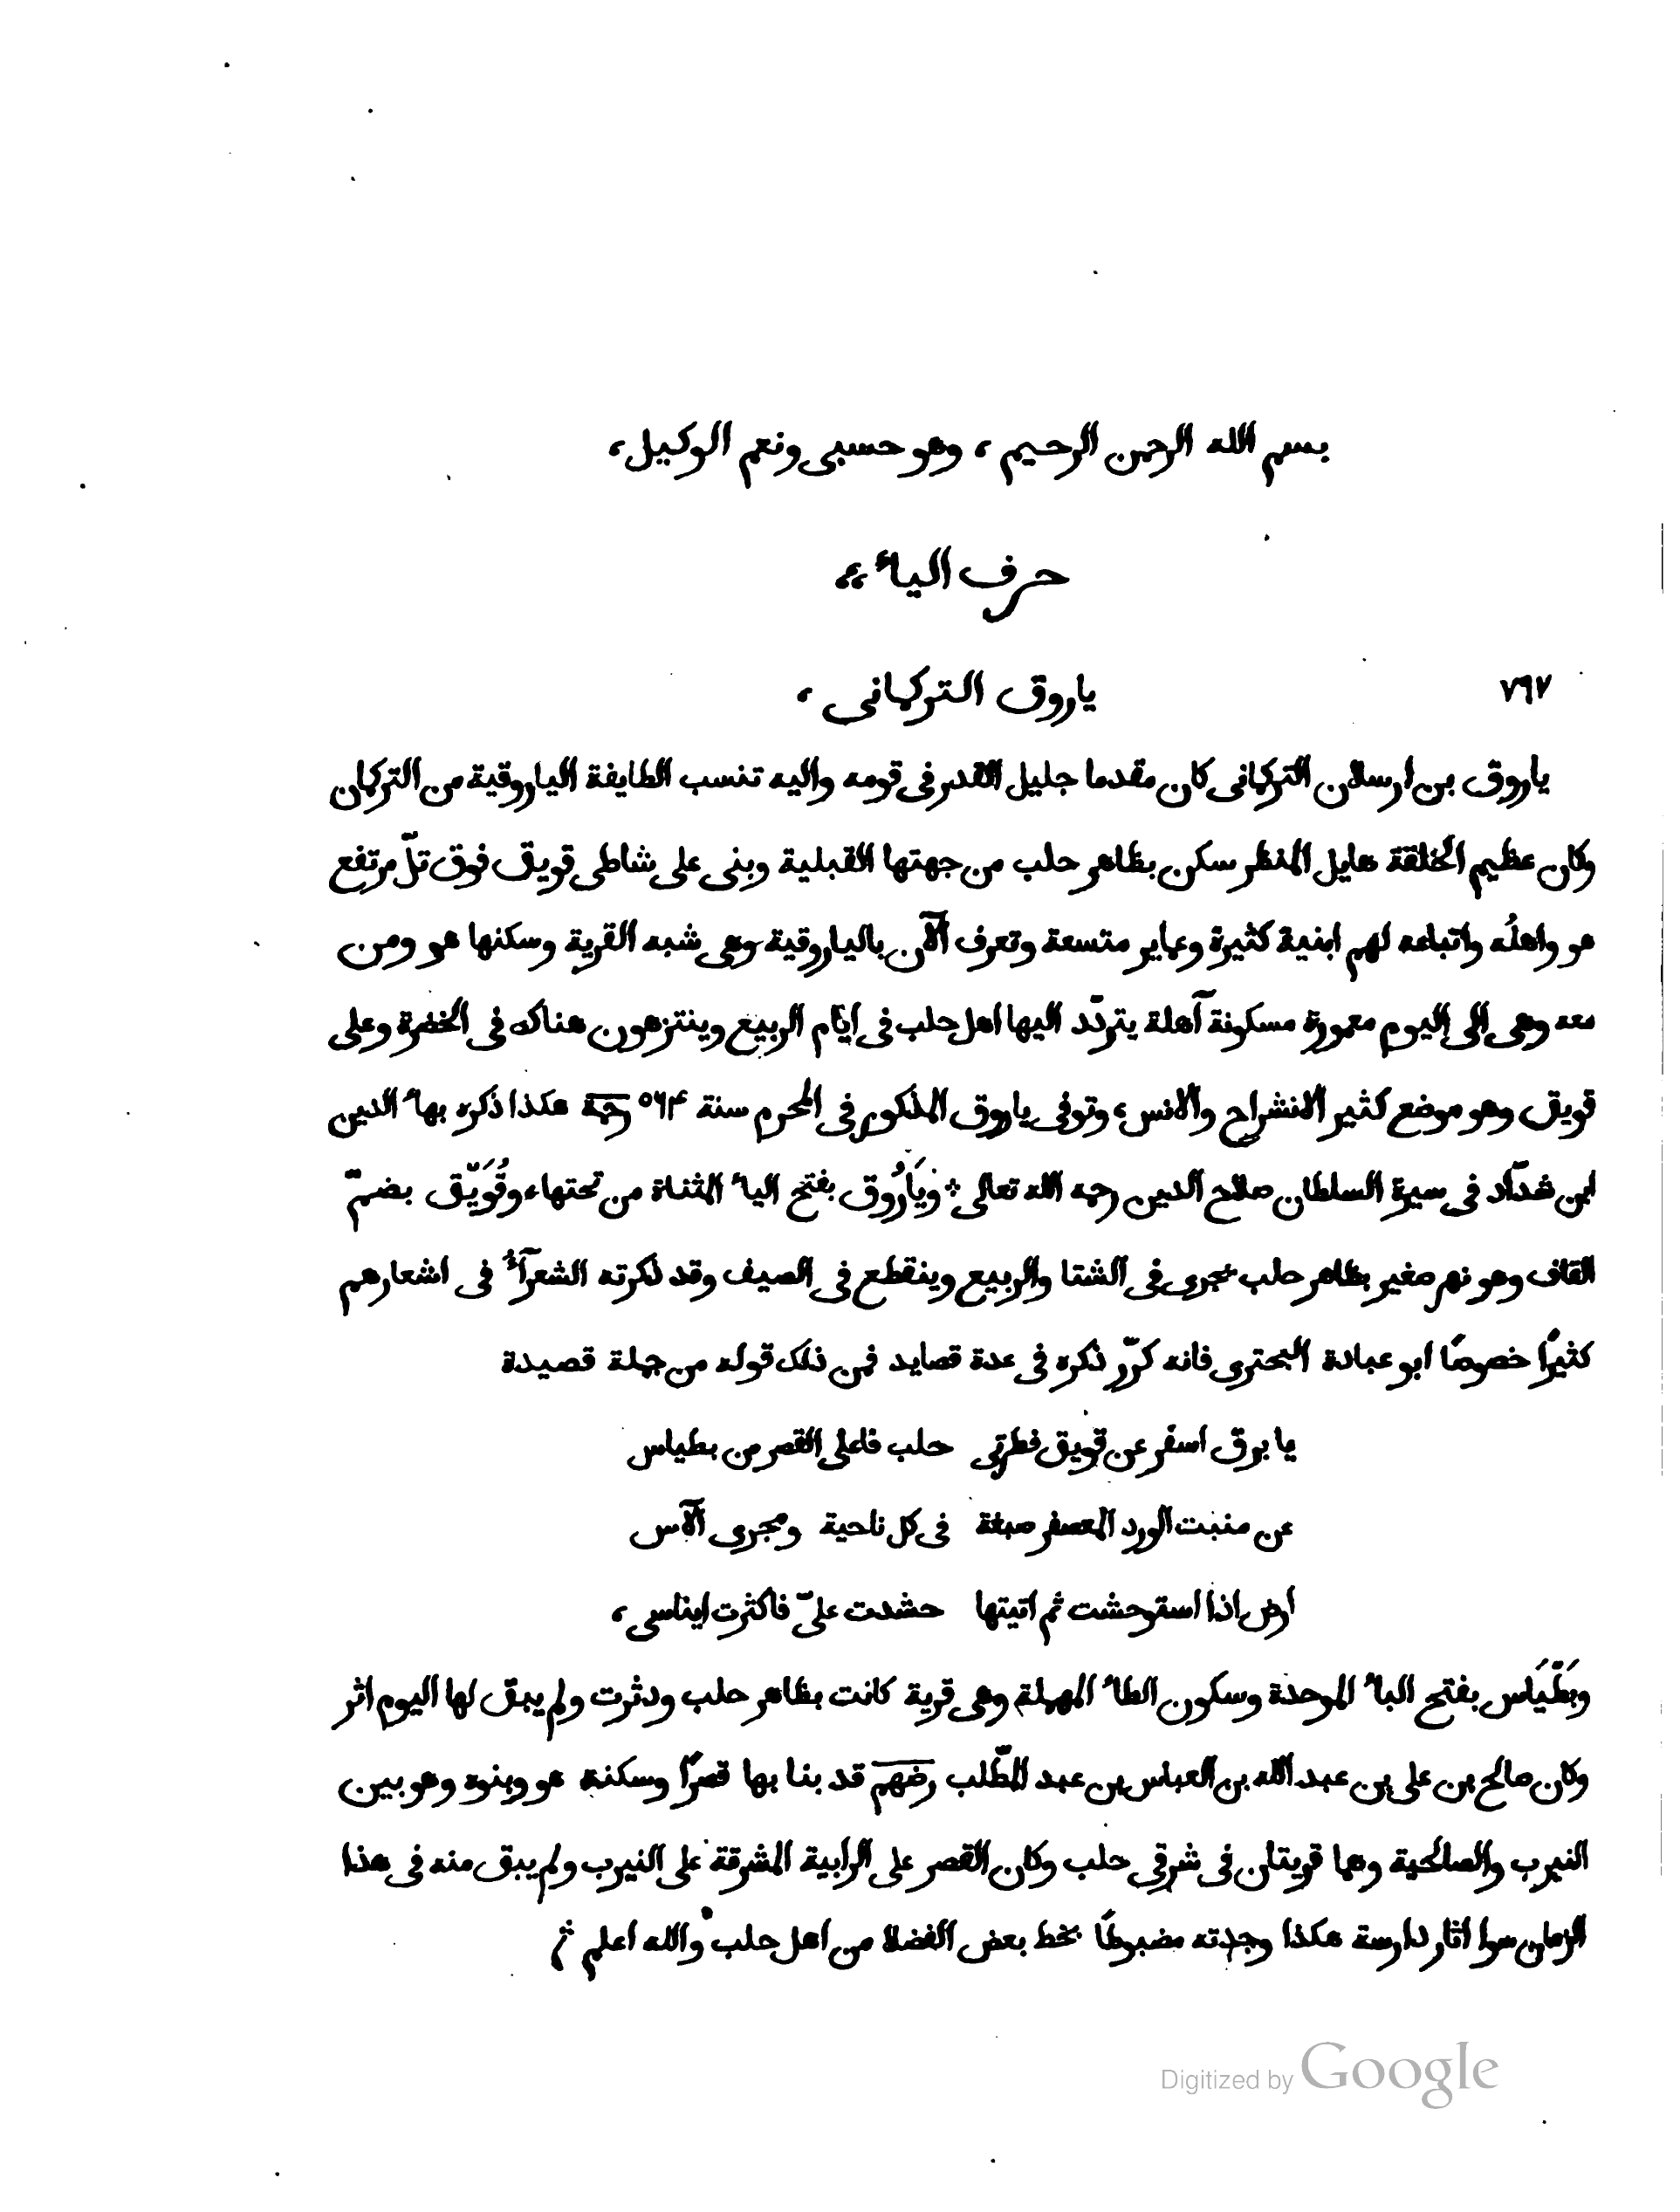 بسم الله الرحمن الرحيم ، وهو حسبى ونعم الوكيل ،
حرف اليآء ،،
٧٦٧ ياروق التركمانى ،
ياروق بن ارسلان التركمانى كان مقدما جليل القدر فى قومه واليه تنسب الطايفة الياروقية من التركمان
وكان عظيم الخلقة هايل المنظر سكن بظاهر حلب من جهتها القبلية وبنى على شاطى قويق فوق تلّ مرتفع
هو واهلُه واتباعه لهم ابنية كثيرة وعماير متسعة وتعرف الآن بالياروقية وهى شبه القرية وسكنها هو ومن
معه وهى الى اليوم معمورة مسكونة آهلة يتردّد اليها اهل حلب فى ايّام الربيع وينتزهون هناك فى الخضرة وعلى
قويق وهو موضع كثير الانشراح والانس ، وتوفى ياروق المذكور فى المحرم سنة ٥٦٤ رحمه هكذا ذكره بهاء الدين
ابن شدّاد فى سيرة السلطان صلاح الدين رحمه الله تعالى ؞ ويَارُوق بفتح الياء المثناة من تحتها ، وقُوَيْق بضمّ
القاف وهو نهر صغير بظاهر حلب يجرى فى الشتا والربيع وينقطع فى الصيف وقد ذكرته الشعرآء فى اشعارهم
كثيرًا خصوصًا ابو عبادة البحترى فانه كرّر ذكره فى عدة قصايد فمن ذلك قوله من جملة قصيدة
يا برق اسفر عن قويق فطرتى حلب فاعلى القصر من بطياس
عن منبت الورد المعصفر صبغة فى كل ناحية ومجرى الآس
ارض اذا استوحشت ثم اتيتها حشدت علىّ فاكثرت ايناسى ،
وبَطْيَاس بفتح الباء الموحدة وسكون الطاء المهملة وهى قرية كانت بظاهر حلب ودثرت ولم يبق لها اليوم اثر
وكان صالح بن على بن عبد الله بن العباس بن عبد المطّلب رضهم قد بنا بها قصرًا وسكنه هو وبنوه وهو بين
النيرب والصالحية وهما قريتان فى شرقى حلب وكان القصر على الرابية المشرفة على النيرب ولم يبق منه فى هذا
الزمان سوا اثار دارسة هكذا وجدته مضبوطًا بخط بعض الفضلا من اهل حلب والله اعلم
Digitized by Google